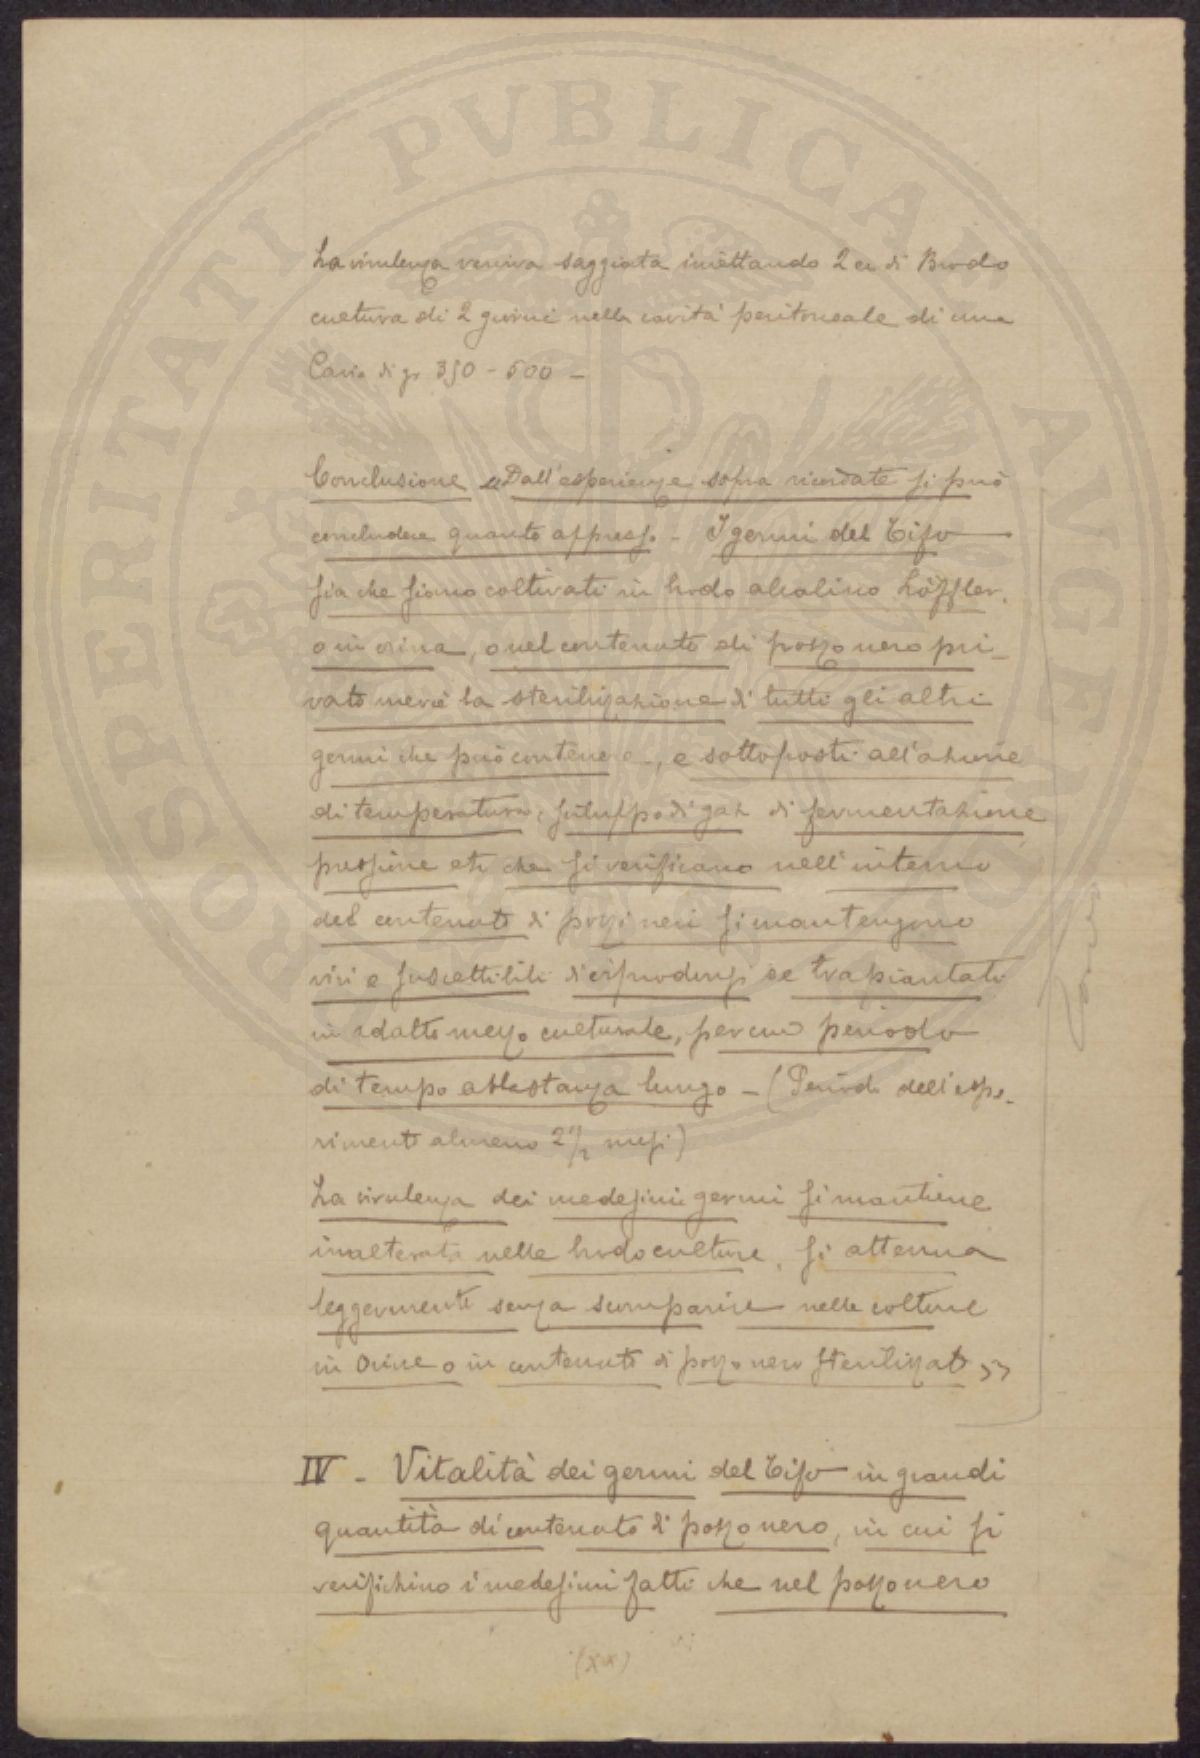 La virulenza veniva saggiata iniettando 2 cc di Brodo
cultura di 2 giorni nella cavità peritoneale di una
Cavia di gr 350 - 500 -
Conclusione "Dall'esperienze sopra ricordate si può
concludere quanto appresso - I germi del Tifo
sia che siano coltivati in brodo alcalino Löffler,
o in orina, o nel contenuto di pozzo nero pri-
vato mercè la sterilizzazione di tutti gli altri
germi che può contenere, e sottoposti all'azione
di temperatura, sviluppo di gaz di fermentazione
pressione etc che si verificano nell'interno
del contenuto di pozzi neri si mantengono
vivi e suscettibili di riprodursi se trapiantati
in adatto mezzo culturale, per un periodo
di tempo abbastanza lungo - (Periodo dell'espe-
rimento almeno 2 1/2 mesi)
La virulenza dei medesimi germi si mantiene
inalterata nelle brodo culture, si attenua
leggermente senza scomparire nelle colture
in Orine o in contenuto di pozzo nero sterilizzato "
IV - Vitalità dei germi del Tifo in grandi
quantità di contenuto di pozzo nero, in cui si
verifichino i medesimi fatti che nel pozzo nero
(XX)
PROSPERITATI PVBLICAE AVGENDAE